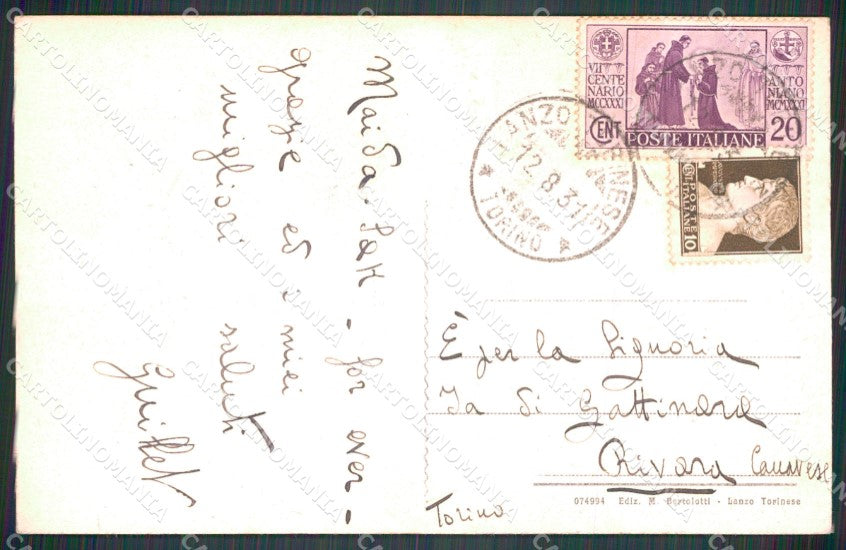 Maida. Sett - for ever -
grazie ed i miei
migliori saluti
Guillet
VII CENTENARIO MCCXXXI
ANTONIANO MCMXXXI
CENT 20
POSTE ITALIANE
POSTE ITALIANE
CENT 10
LANZO TORINESE
12.8.31
* TORINO *
È per la Signoria
Ia di Gattinara
Rivara Canavese
Torino
074994 Ediz. M. Bertolotti - Lanzo Torinese
CARTOLINOMANIA